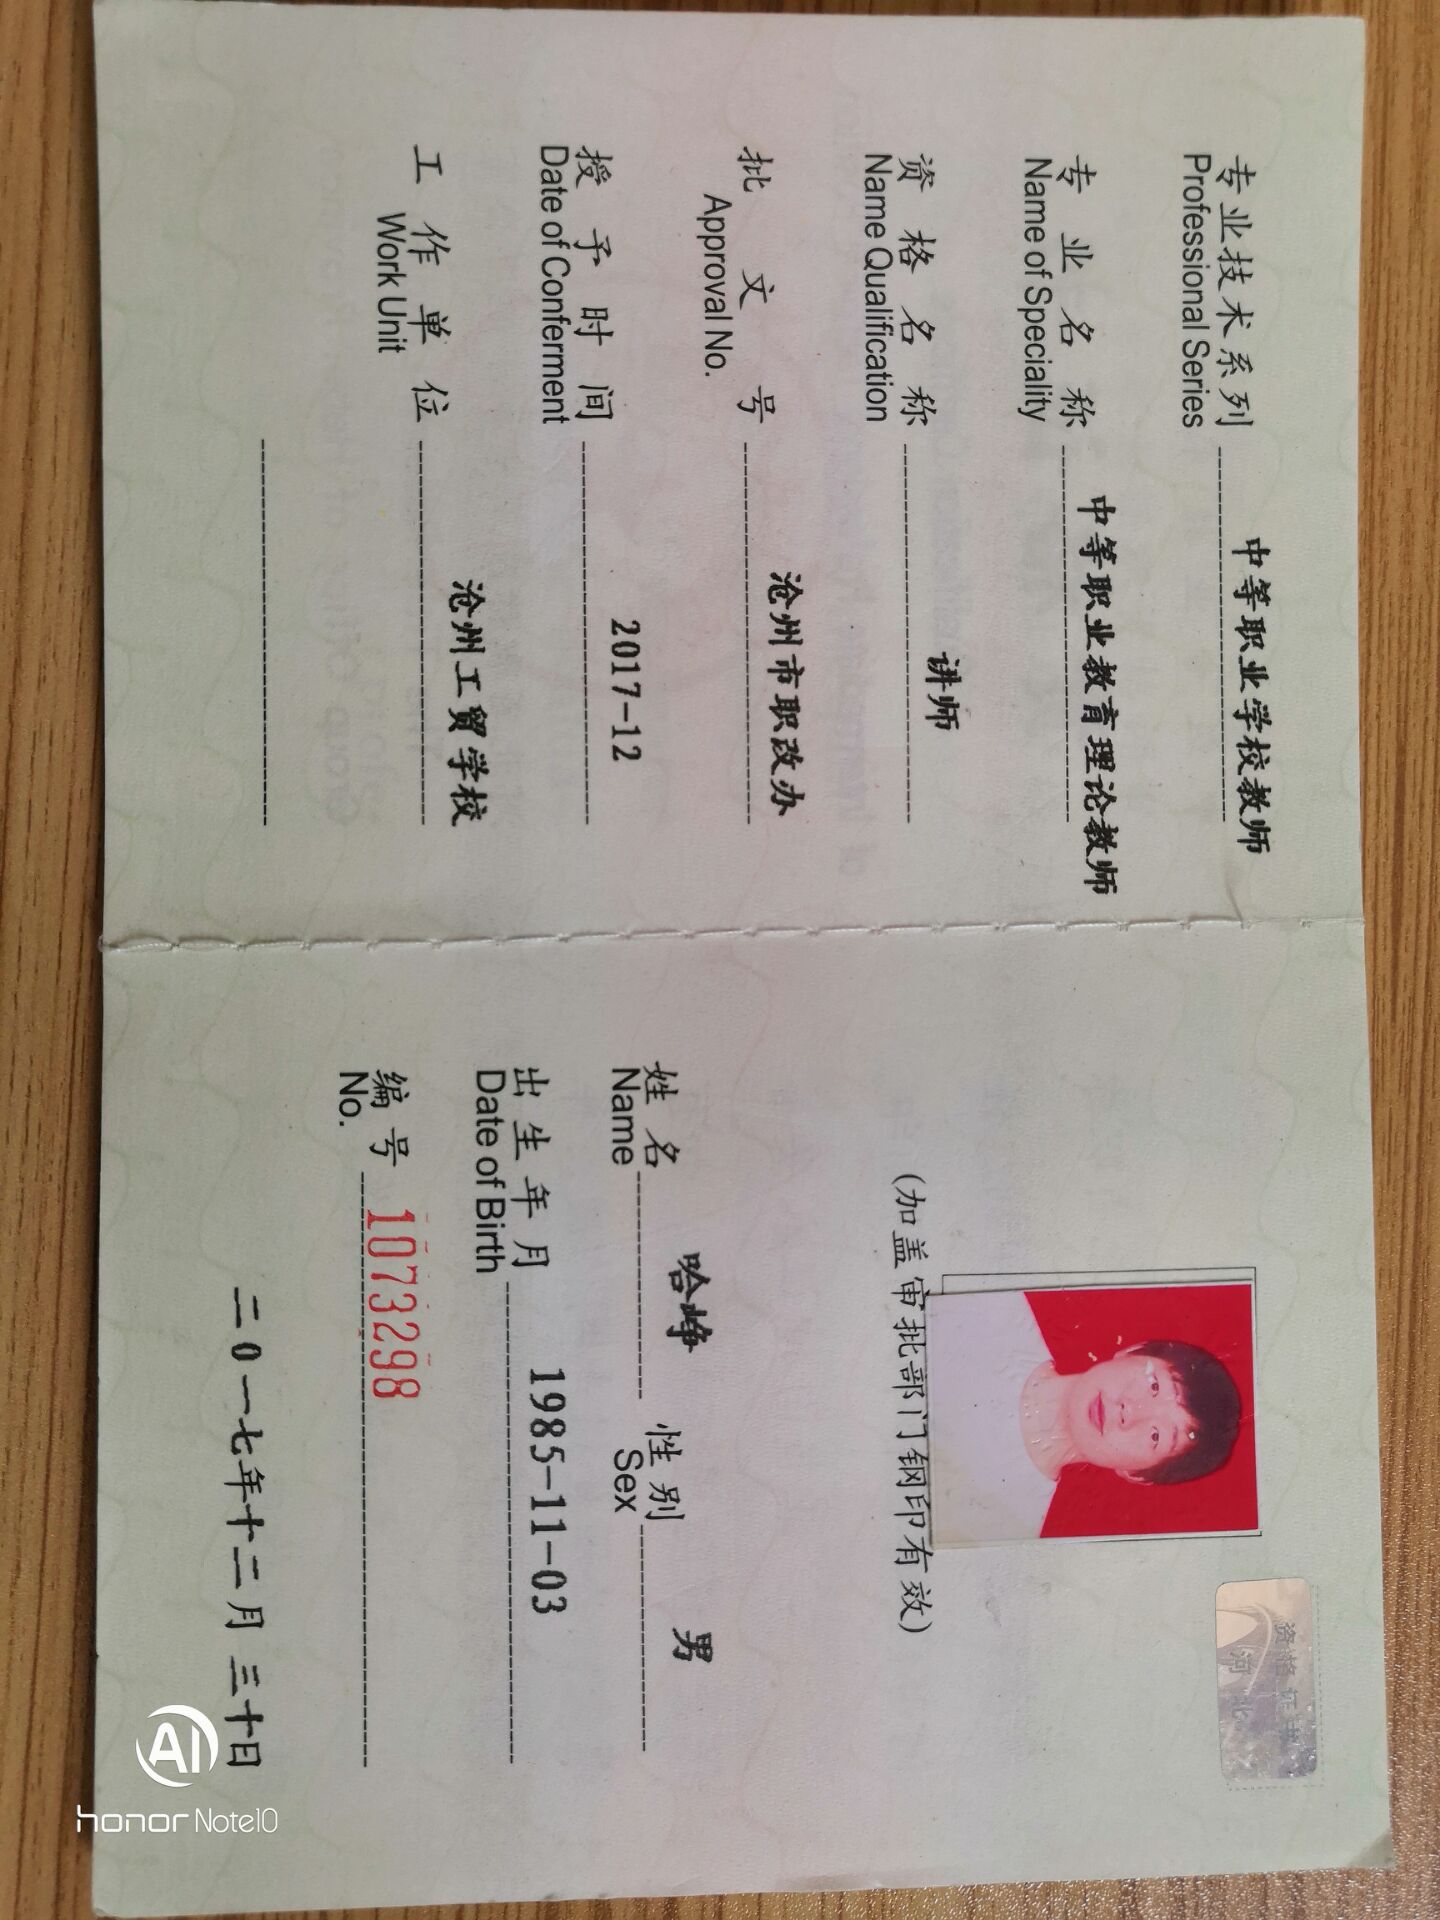 专业技术系列 中等职业学校教师
Professional Series
专业名称 中等职业教育理论教师
Name of Speciality
资格名称 讲师
Name Qualification
批文号 沧州市职改办
Approval No.
授予时间 2017-12
Date of Conferment
工作单位 沧州工贸学校
Work Unit
资格证书
河北
(加盖审批部门钢印有效)
姓名 哈峥 性别 男
Name Sex
出生年月 1985-11-03
Date of Birth
编号 1073298
No.
二0一七年十二月三十日
AI
honor Note10